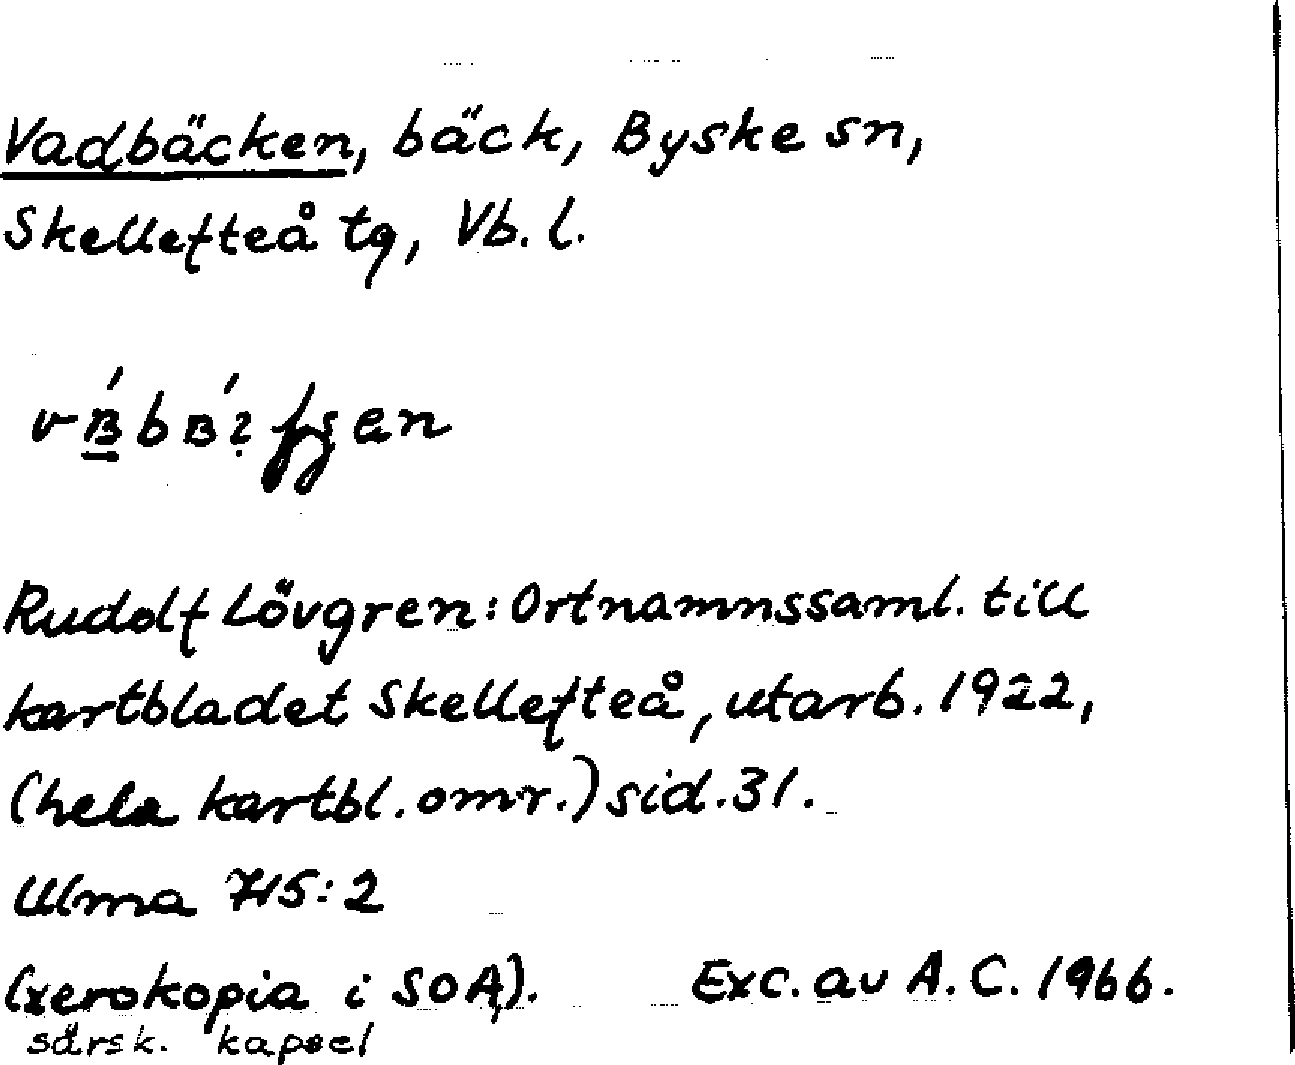 Vadbäcken, bäck, Byske sn,
Skellefteå tg, Vb. l.
Rudolf Lövgren: Ortnamnssaml. till
kartbladet Skellefteå, utarb. 1922,
(hela kartbl. omr.) sid. 31.
Ulma 715:2
(xerokopia i SOA). Exc. av A. C. 1966.
särsk. kapsel